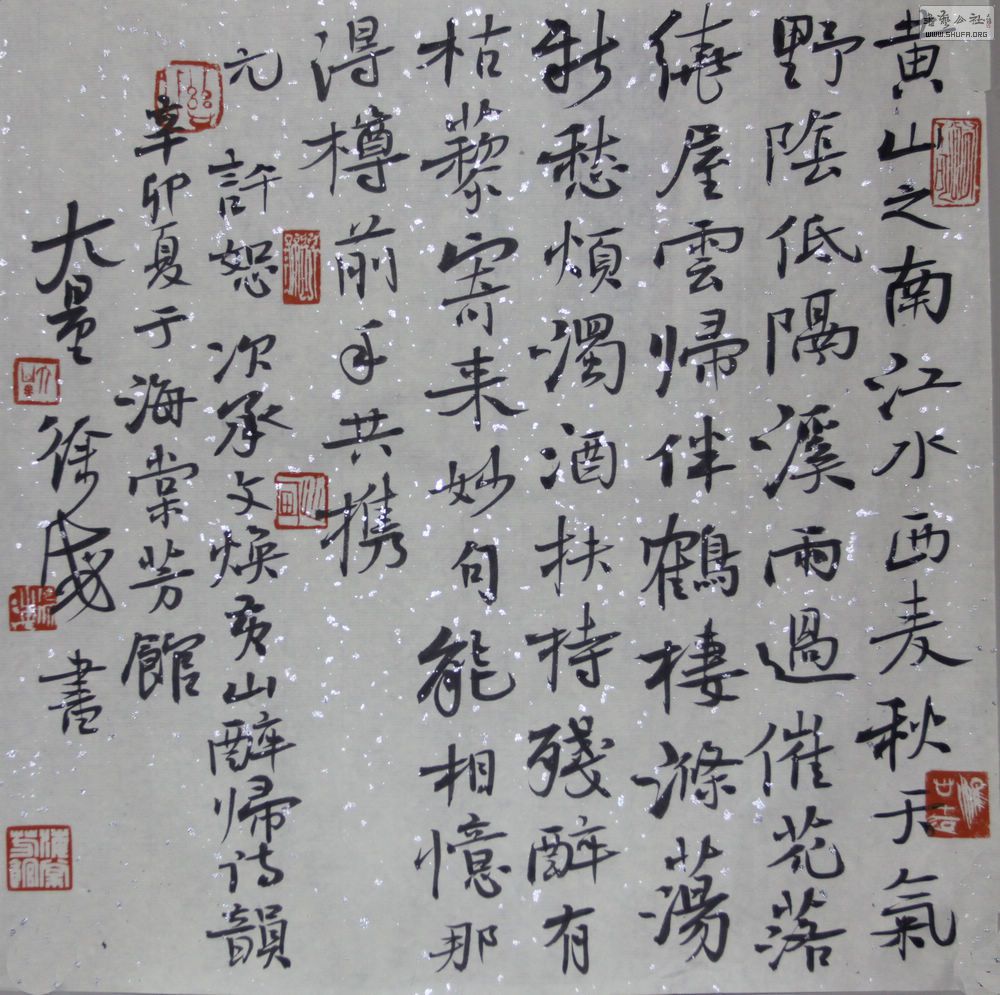 黄山之南江水西麦秋天氣
野陰低隔溪雨過催花落
繞屋雲歸伴鶴棲滌蕩
新愁煩濁酒扶持殘醉有
枯藜寄来妙句能相憶那
淂樽前手共携
元許恕次承文焕黄山醉歸诗韻
辛卯夏于海棠芳館
大量徐成書
書藝公社
WWW.SHUFA.ORG